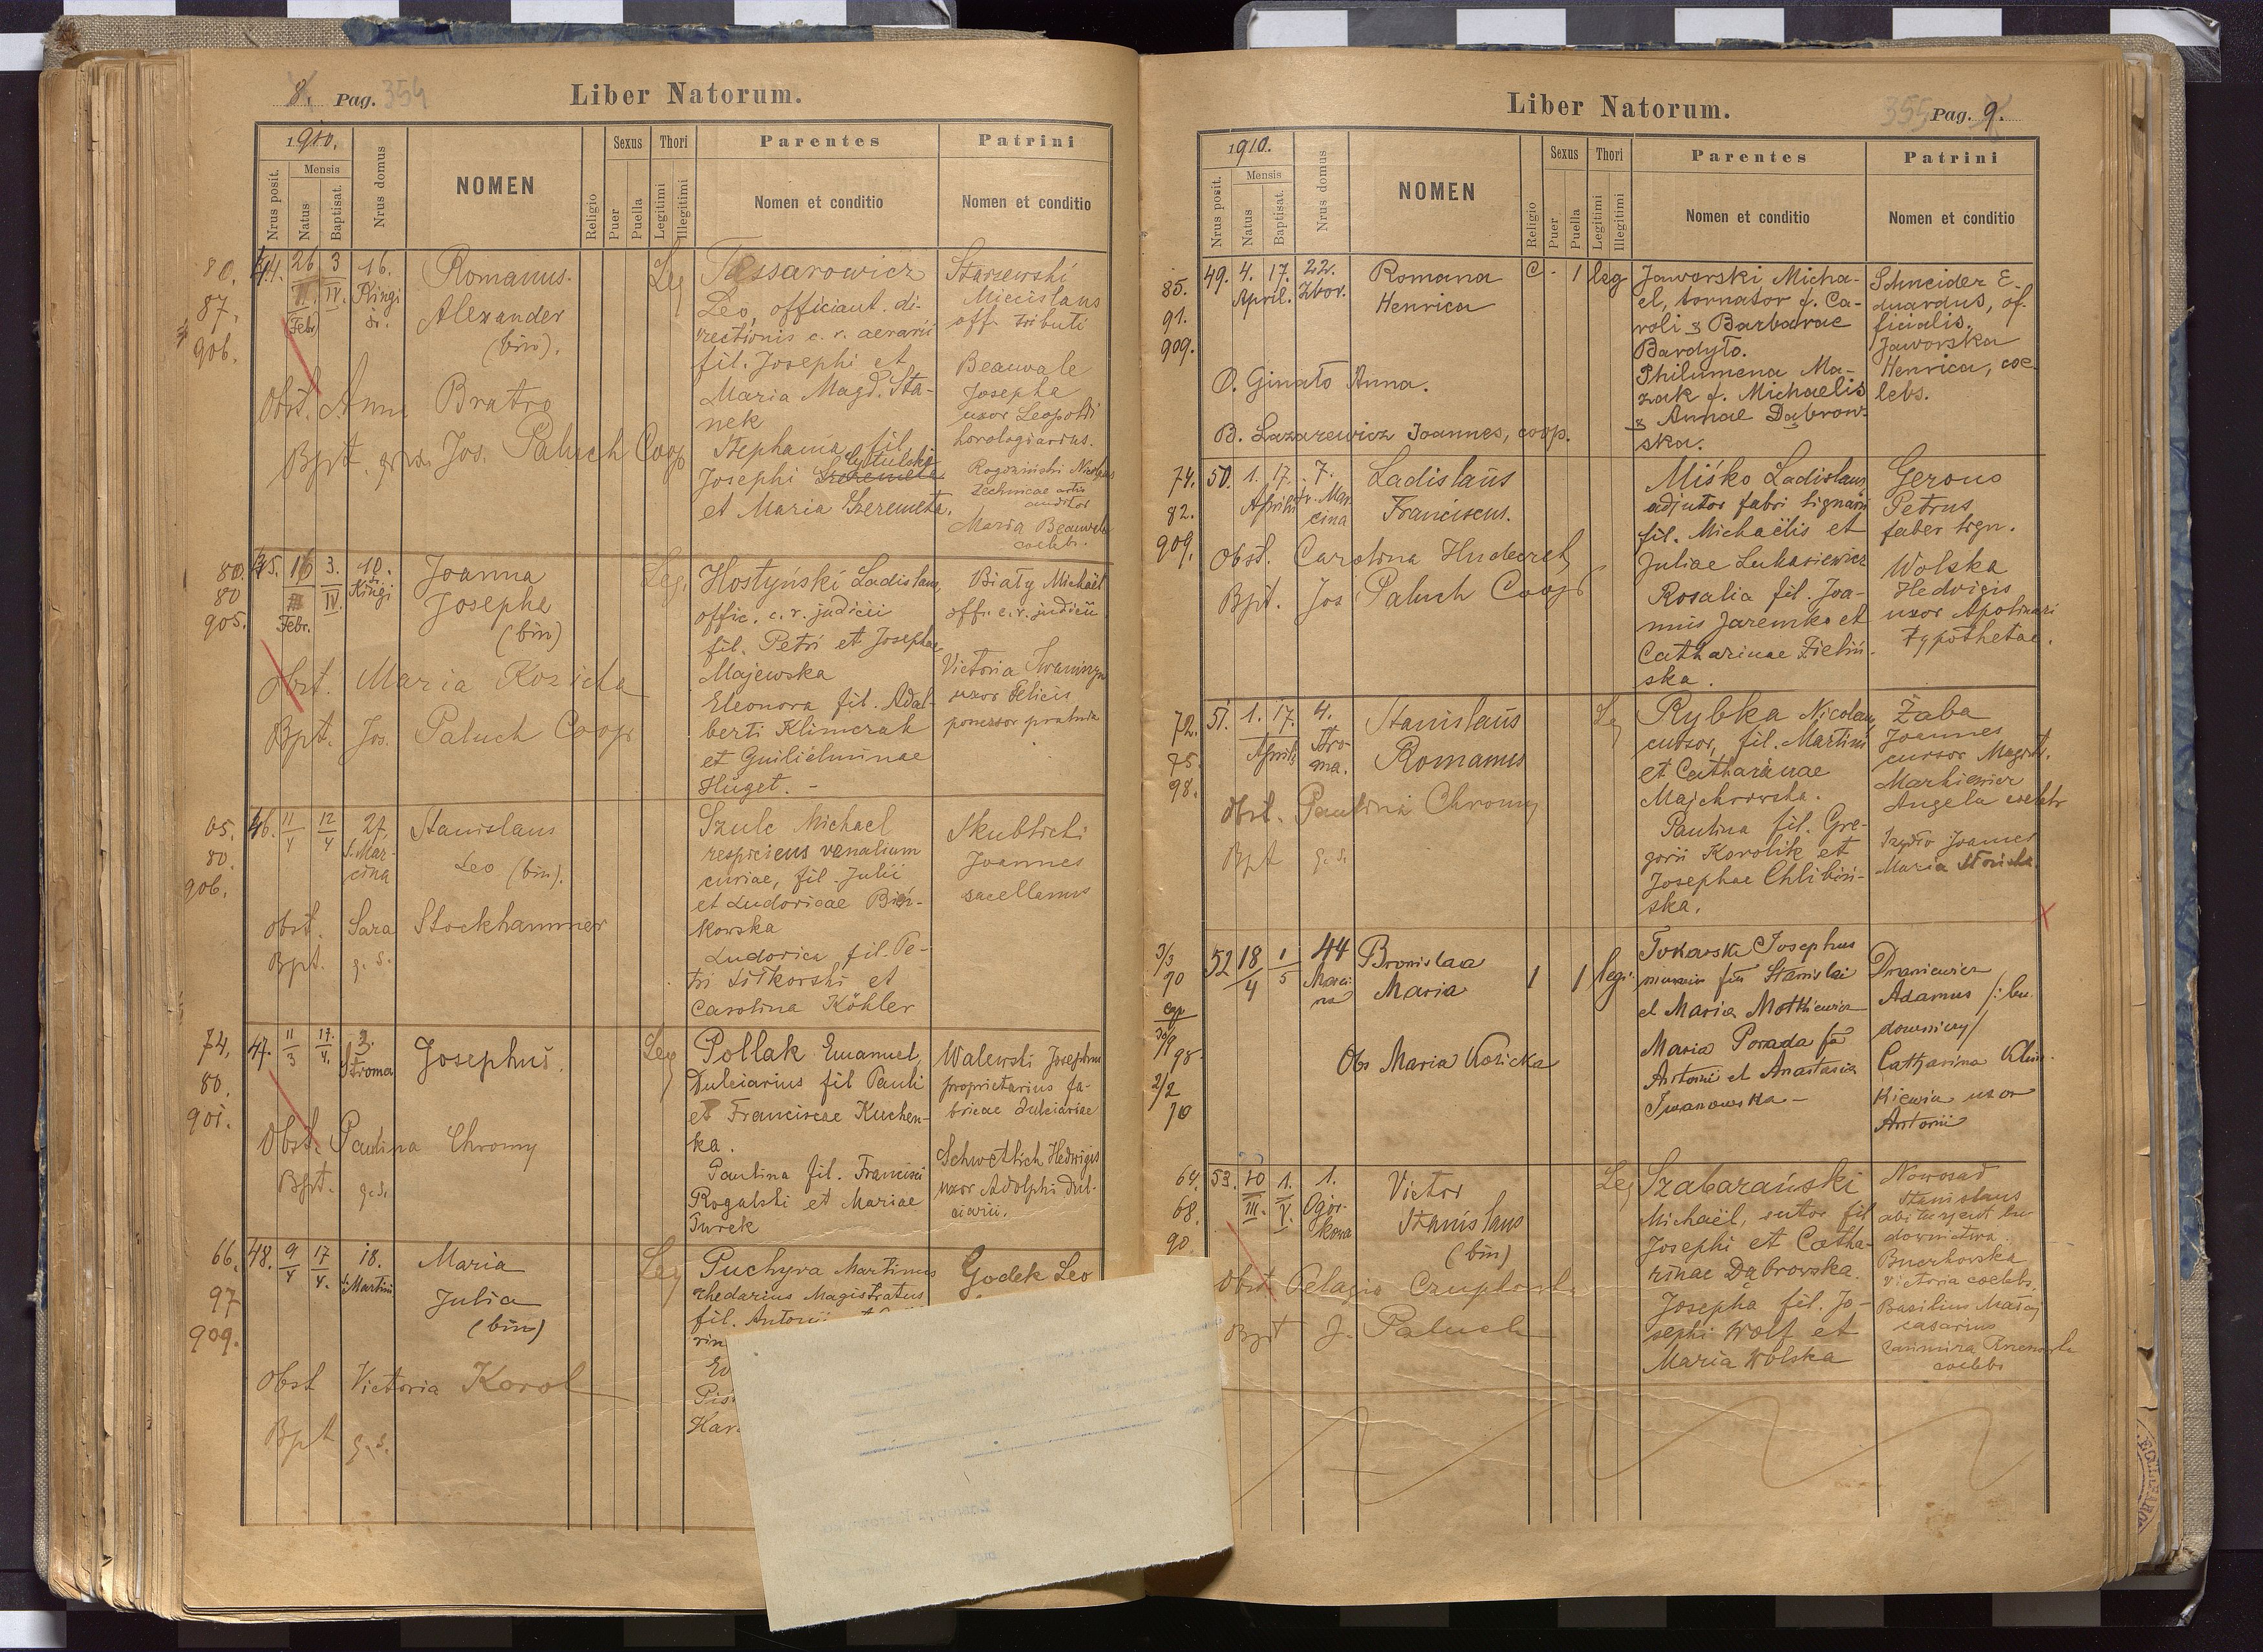 8. Pag. 354
Liber Natorum.
1910.
Nrus posit.
Mensis
Natus
Baptisat.
Nrus domus
NOMEN
Religio
Sexus
Puer
Puella
Thori
Legitimi
Illegitimi
Parentes
Nomen et conditio
Patrini
Nomen et conditio
80.
87.
906.
44. 26 3 16.
II. IV. Kingi
Febr
Romanus.
Alexander
(bin).
Obst. Anna Bratro
Bpt. Jos. Paluch Coop
Leg
Tessarowicz
Leo, officiant. di-
rectionis c. r. aerarii
fil. Josephi et
Maria Magd. Sta-
nek
Stephania, fil.
Josephi
et Maria Szeremeta.
Starzewski
Miecislaus
off. tributi
Beauvale
Josepha
uxor Leopoldi
horologiarius.
Rogoziński Nicolaus
technicae artis
auditor
Maria Beauvale
coelebs.
80.
80
905.
45. 16 3. 10.
III IV. Kingi
Febr.
Joanna
Josepha
(bin)
Obst. Maria Kozicka
Bpt. Jos. Paluch Coop
Leg.
Hostyński Ladislaus,
offic. c. r. judicii
fil. Petri et Josephae
Majewska
Eleonora fil. Adal-
berti Klimczak
et Guilielminae
Huget. -
Biały Michael
off. c. r. judicii
Victoria
uxor Felicis
possessor
05.
80.
906.
46. 11 12 27.
4 4 S. Mar-
cina
Stanislaus
Leo (bin).
Obst. Sara Stockhammer
Bpt. q. s.
Szulc Michael
respiciens venalium
curiae, fil. Julii
et Ludovicae Bień-
kowska
Ludovica fil. Pe-
tri Sitkorski et
Carolina Köhler
Skublicki
Joannes
sacellanus
74.
80.
901.
47. 11 17. 3.
3 4. Stroma
Josephus.
Obst. Paulina Chromy
Bpt. q. s.
Leg
Pollak Emanuel,
Dulciarius fil Pauli
et Franciscae Kuchen-
ka.
Paulina fil. Francisci
Rogalski et Mariae
Turek
Walewski Josephus
proprietarius fa-
bricae dulciariae
Schwetlich Hedwigis
uxor Adolphi dul-
ciarii.
66.
97
909.
48. 9 17 18.
4 4. S. Martini
Maria
Julia
(bin)
Obst Victoria Korol
Bpt q. s.
Leg
Puchyra Martinus
rhedarius Magistratus
fil. Antonii
rin
Pis
Har
Godek Leo
Liber Natorum.
355 Pag. 9.
1910.
Nrus posit.
Mensis
Natus
Baptisat.
Nrus domus
NOMEN
Religio
Sexus
Puer
Puella
Thori
Legitimi
Illegitimi
Parentes
Nomen et conditio
Patrini
Nomen et conditio
85.
91.
909.
49. 4. 17. 22.
April. Zbor.
Romana
Henrica
C - 1 leg
O. Ginało Anna.
B. Lazarewicz Joannes, coop.
Jaworski Micha-
el, tornator f. Ca-
roli & Barbarae
Bardyło.
Philumena Ma-
zak f. Michaelis
& Annae Dąbrow-
ska.
Schneider E-
duardus, of-
ficialis.
Jaworska
Henrica, coe-
lebs.
74.
82.
909.
50. 1. 17. 7.
Aprilis Mar-
cina
Ladislaus
Franciscus.
Obst. Carolina Huderek
Bpt. Jos Paluch Coop
Miśko Ladislaus
adjutor fabri lignarii
fil. Michaëlis et
Juliae Lukasiewicz
Rosalia fil. Joa-
nnis Jaremko et
Catharinae Zieliń-
ska.
Gerono
Petrus
faber lign.
Wolska
Hedvigis
uxor Apolinari
typothetae.
72.
75.
98.
51. 1. 17. 4.
Aprilis Stro-
ma.
Stanislaus
Romanus
Obst. Paulina Chromy
Bpt q. s.
Leg
Rybka Nicolaus
cursor, fil. Martini
et Catharinae
Majchrowska.
Paulina fil. Gre-
gorii Korolik et
Josephae Chlibiń-
ska.
Żaba
Joannes
cursor Magistr.
Markiewicz
Angela coelebs
Joannes
Maria
3/3
70
98.
2/2
10
52 18 1 44
4 5 Marci-
na
Bronislava
Maria
1 1 legi
Obs Maria Kozicka
Tokarski Josephus
murarius fil Stanislai
et Maria Motkiewicz
Maria Porada fa
Antonii et Anastasia
Iwanowska -
Dmaniewicz
Adamus /: bu-
downiczy/
Catharina Klim-
kiewicz uxor
Antonii
64.
68.
90.
53. 10 1. 1.
III. V. Ogór-
kowa
Victor
Stanislaus
(bin)
Obst Pelagia Czuplowska
Bpt J. Paluch
Leg
Szabarański
Michaël, sutor fil
Josephi et Catha-
rinae Dąbrowska.
Josepha fil. Jo-
sephi Wolf et
Maria Wolska
Nowosad
Stanislaus
abiturient bu-
downictwa.
Buczkowska
Victoria coelebs.
Basilius
casarius
Casimira
coelebs